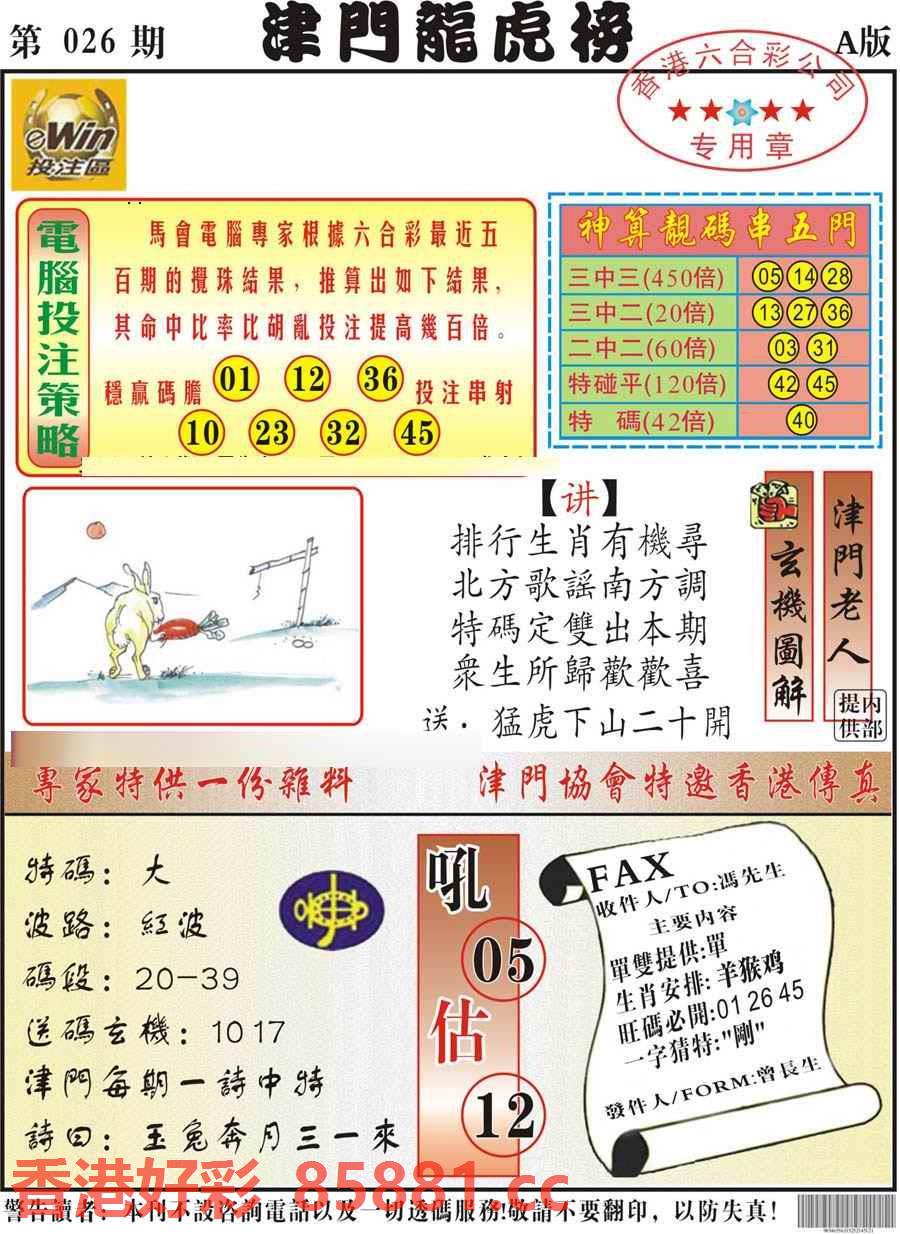 第 026 期
津門龍虎榜
A版
香港六合彩公司
专用章
eWin
投注區
電腦投注策略
馬會電腦專家根據六合彩最近五
百期的攪珠結果，推算出如下結果，
其命中比率比胡亂投注提高幾百倍。
穩贏碼膽 01 12 36 投注串射
10 23 32 45
神算靚碼串五門
三中三(450倍) 05 14 28
三中二(20倍) 13 27 36
二中二(60倍) 03 31
特碰平(120倍) 42 45
特 碼(42倍) 40
【讲】
排行生肖有機尋
北方歌謠南方調
特碼定雙出本期
衆生所歸歡歡喜
送．猛虎下山二十開
玄機圖解
津門老人
内部提供
專家特供一份雜料
津門協會特邀香港傳真
特碼：大
波路：紅波
碼段：20－39
送碼玄機：10 17
津門每期一詩中特
詩曰：玉兔奔月三一來
吼
05
估
12
FAX
收件人/TO:馮先生
主要内容
單雙提供:單
生肖安排:羊猴鸡
旺碼必開:01 26 45
一字猜特:"剛"
發件人/FORM:曾長生
香港好彩 85881.cc
警告讀者：本刊不設咨詢電話以及一切透碼服務!敬請不要翻印，以防失真!